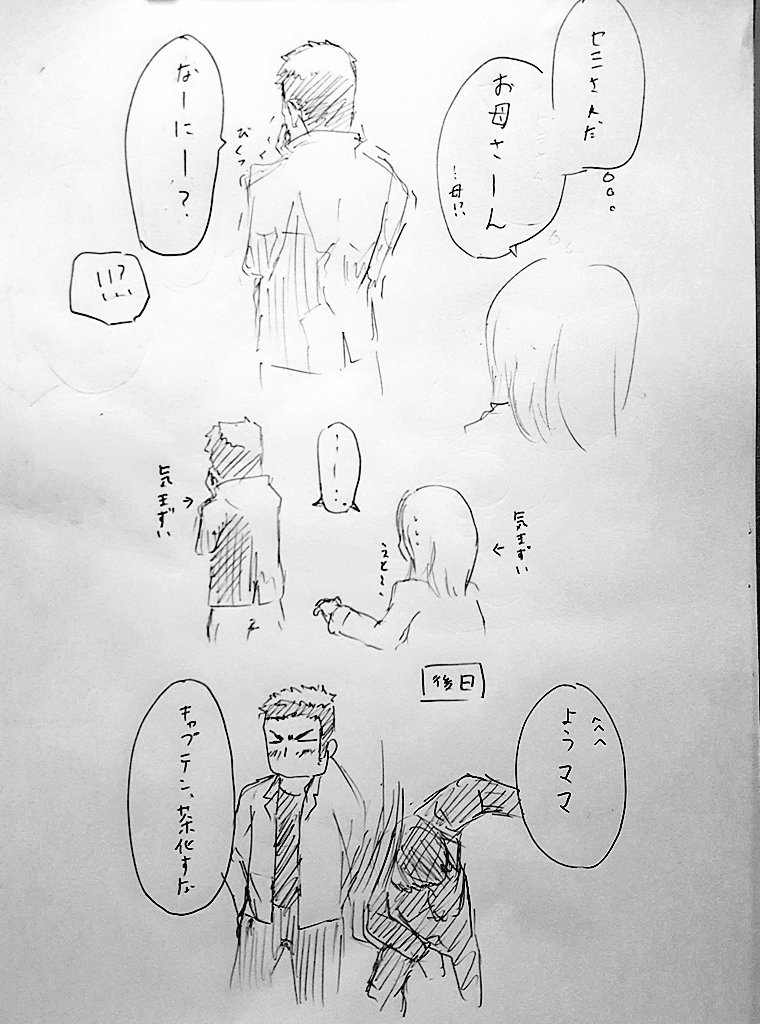 セミさんだ
お母さーん
…母!?
びくっ
なーにー?
!!?
……
気まずい
えと…、
気まずい
後日
よう ママ
キャプテン、茶化すな